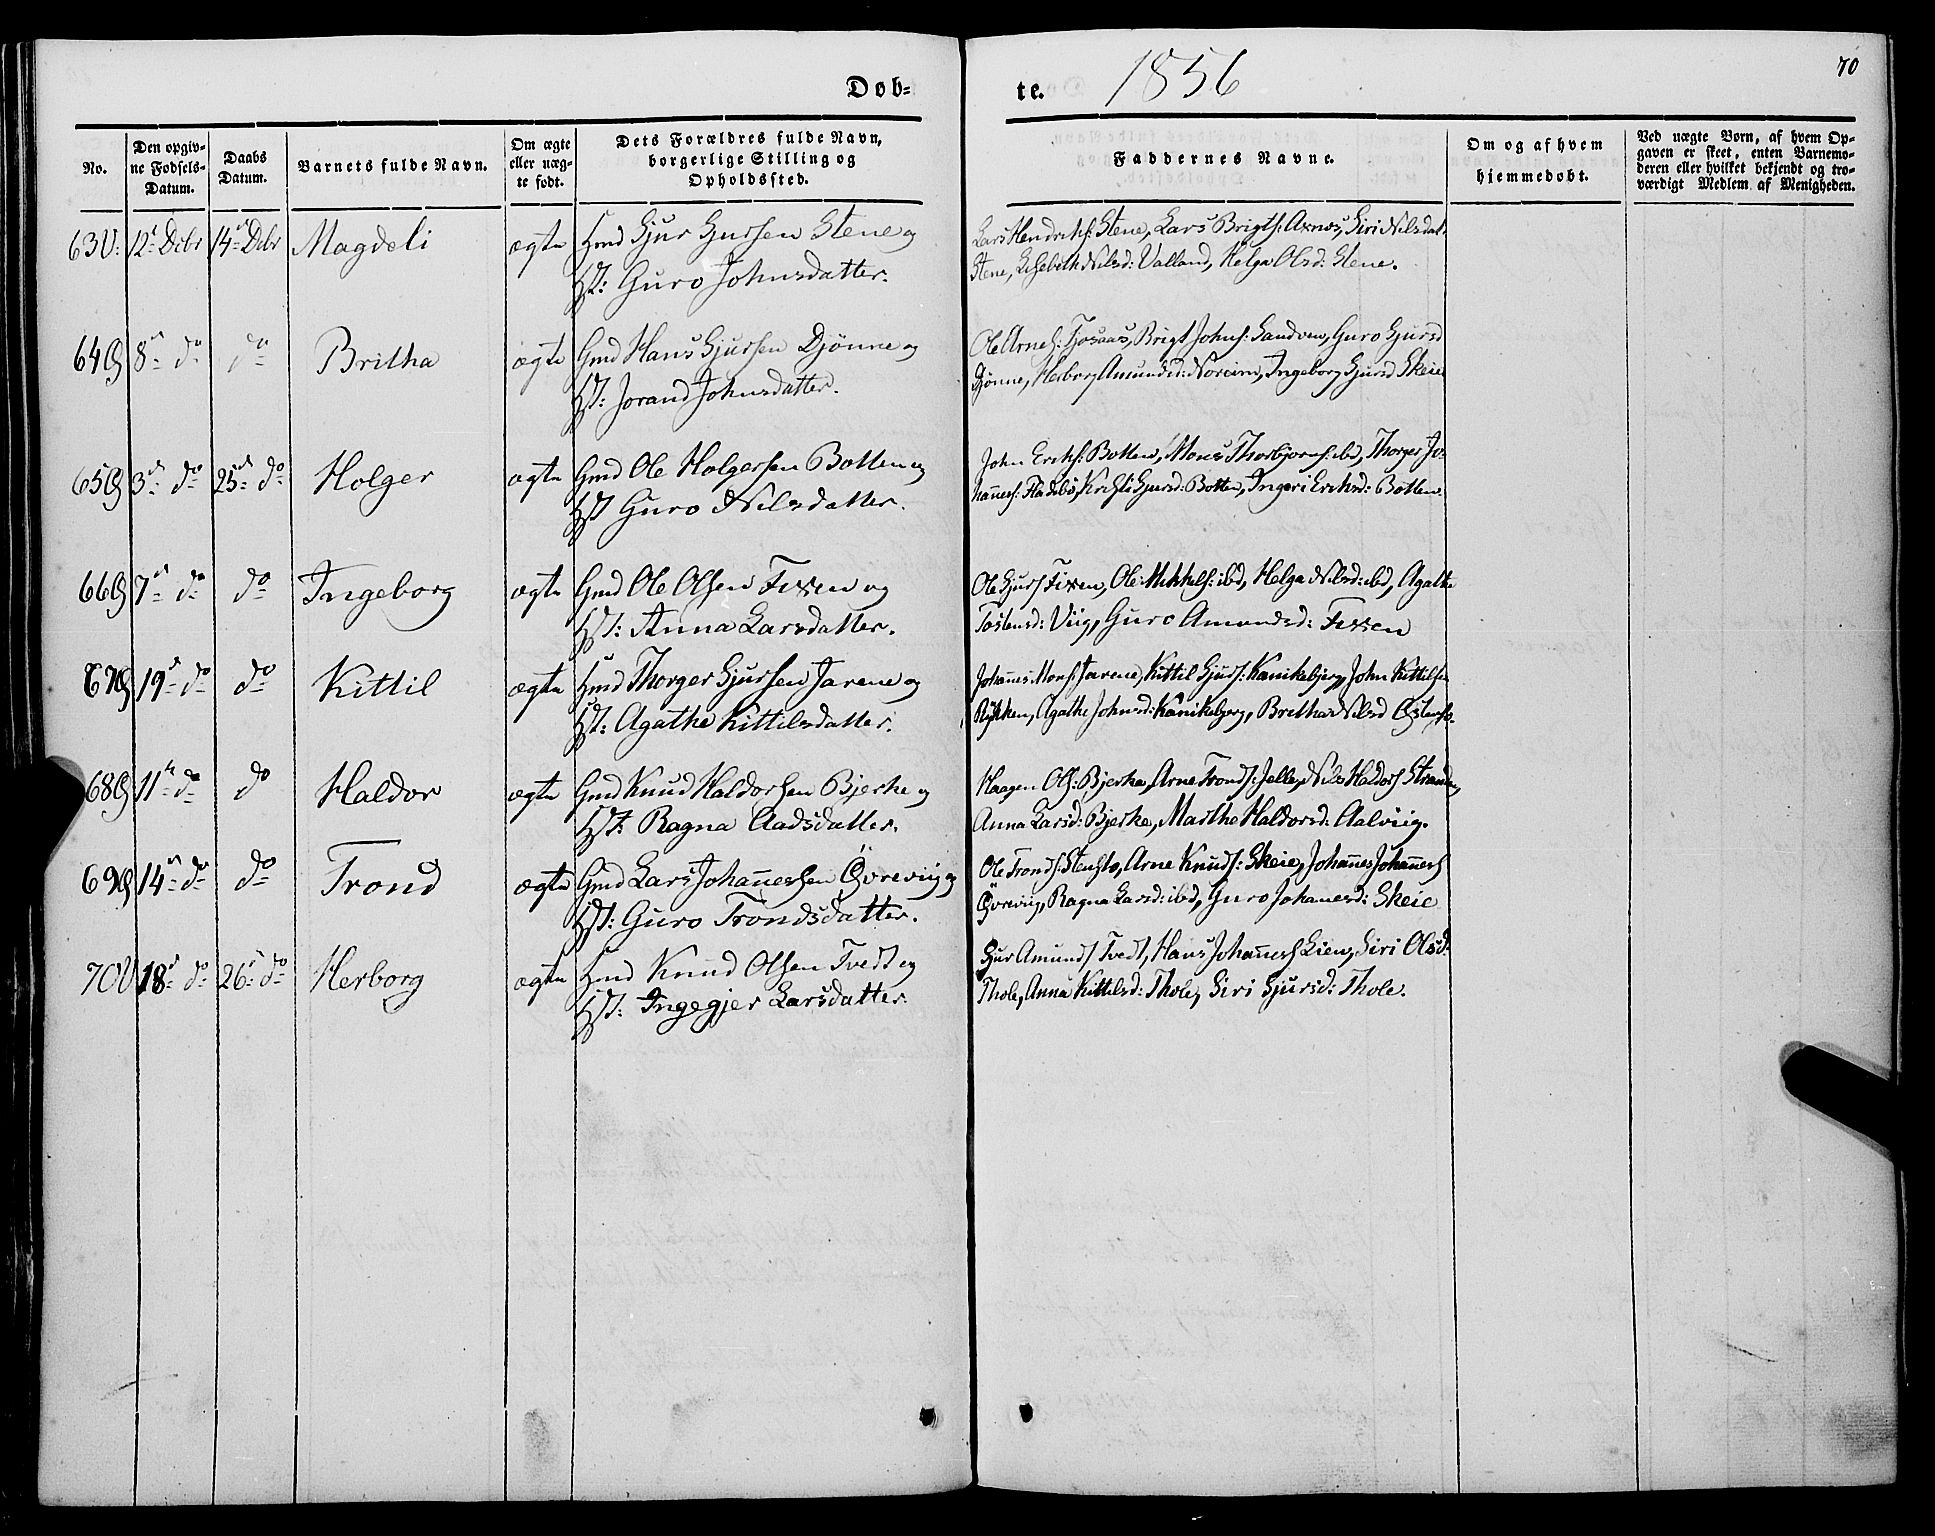 Døb-
te.
1856
70
No.
Den opgiv-
ne Fødsels-
Datum.
Daabs
Datum.
Barnets fulde Navn.
Om ægte
eller uæg-
te født.
Dets Forældres fulde Navn,
borgerlige Stilling og
Opholdssted.
Faddernes Navne.
Om og af hvem
hjemmedøbt.
Ved uægte Børn, af hvem Op-
gaven er skeet, enten Barnemo-
deren eller hvilket bekjendt og tro-
værdigt Medlem af Menigheden.
63 12 Debr 14 Debr Magdeli ægte Hmd Sjur Sjursen Stene og
Hst: Guro Johnsdatter.
Lars Hendrichs: Stene, Lars Brigts: Axnos, Siri Nilsdat:
Stene, Lisebeth Nilsd: Valland, Helga Olsd: Stene.
64 8 do do Britha ægte Gmd Hans Sjursen Djönne og
Hst: Jorand Johnsdatter.
Ole Arnes: Fosaas, Brigt Johns: Sandven, Guro Sjursd
Djönne, Herborg Amundsd: Noreim, Ingeborg Sjursd Skeie
65 3 do 25 do Holger ægte Gmd Ole Holgersen Botten og
Hst Guro Nilsdatter.
John Erichs: Botten, Mons Thorbjorns: ibd, Thorger Jo-
hannes: Fladebö, Kirsti Sjursd: Botten, Ingeri Erichsd: Botten
66 7 do do Ingeborg ægte Gmd Ole Olsen Fixen og
Hst: Anna Larsdatter.
Ole Sjurs Fixen, Ole Mikkels: ibd, Helga Nilsd: ibd, Agatha
Tostensd: Viig, Guro Amundsd: Fixen
67 19 do do Kittil ægte Hmd Thorger Sjursen Jarene og
Hst: Agathe Kittilsdatter.
Johannes Mons: Jarene, Kittil Sjurs: Kanikebjerg, John Kittilsen
Rykken, Agathe Johnsd: Kanikebjerg, Britha Nilsd
68 11 do do Haldor ægte Gmd Knud Haldorsen Bjerke og
Hst: Ragna Aadsdatter.
Haagen Ols: Bjerke, Arne Tronds: Jelle, Nils Haldors Stranden,
Anna Larsd: Bjerke, Marthe Haldorsd: Aalviig.
69 14 do do Trond ægte Gmd Lars Johannessen Övreviig og
Hst: Guro Trondsdatter.
Ole Tronds: Stensto, Arne Knuds: Skeie, Johannes Johannes
Övreviig, Ragna Larsd: ibd, Guro Johanesd: Skeie
70 18 do 26 do Herborg ægte Hmd Knud Olsen Tvedt og
Hst: Ingegjer Larsdatter
Sjur Amunds Tvedt, Hans Johannes Lien, Siri Olsd:
Thole, Anna Kittilsd: Thole, Siri Sjursd: Thole.